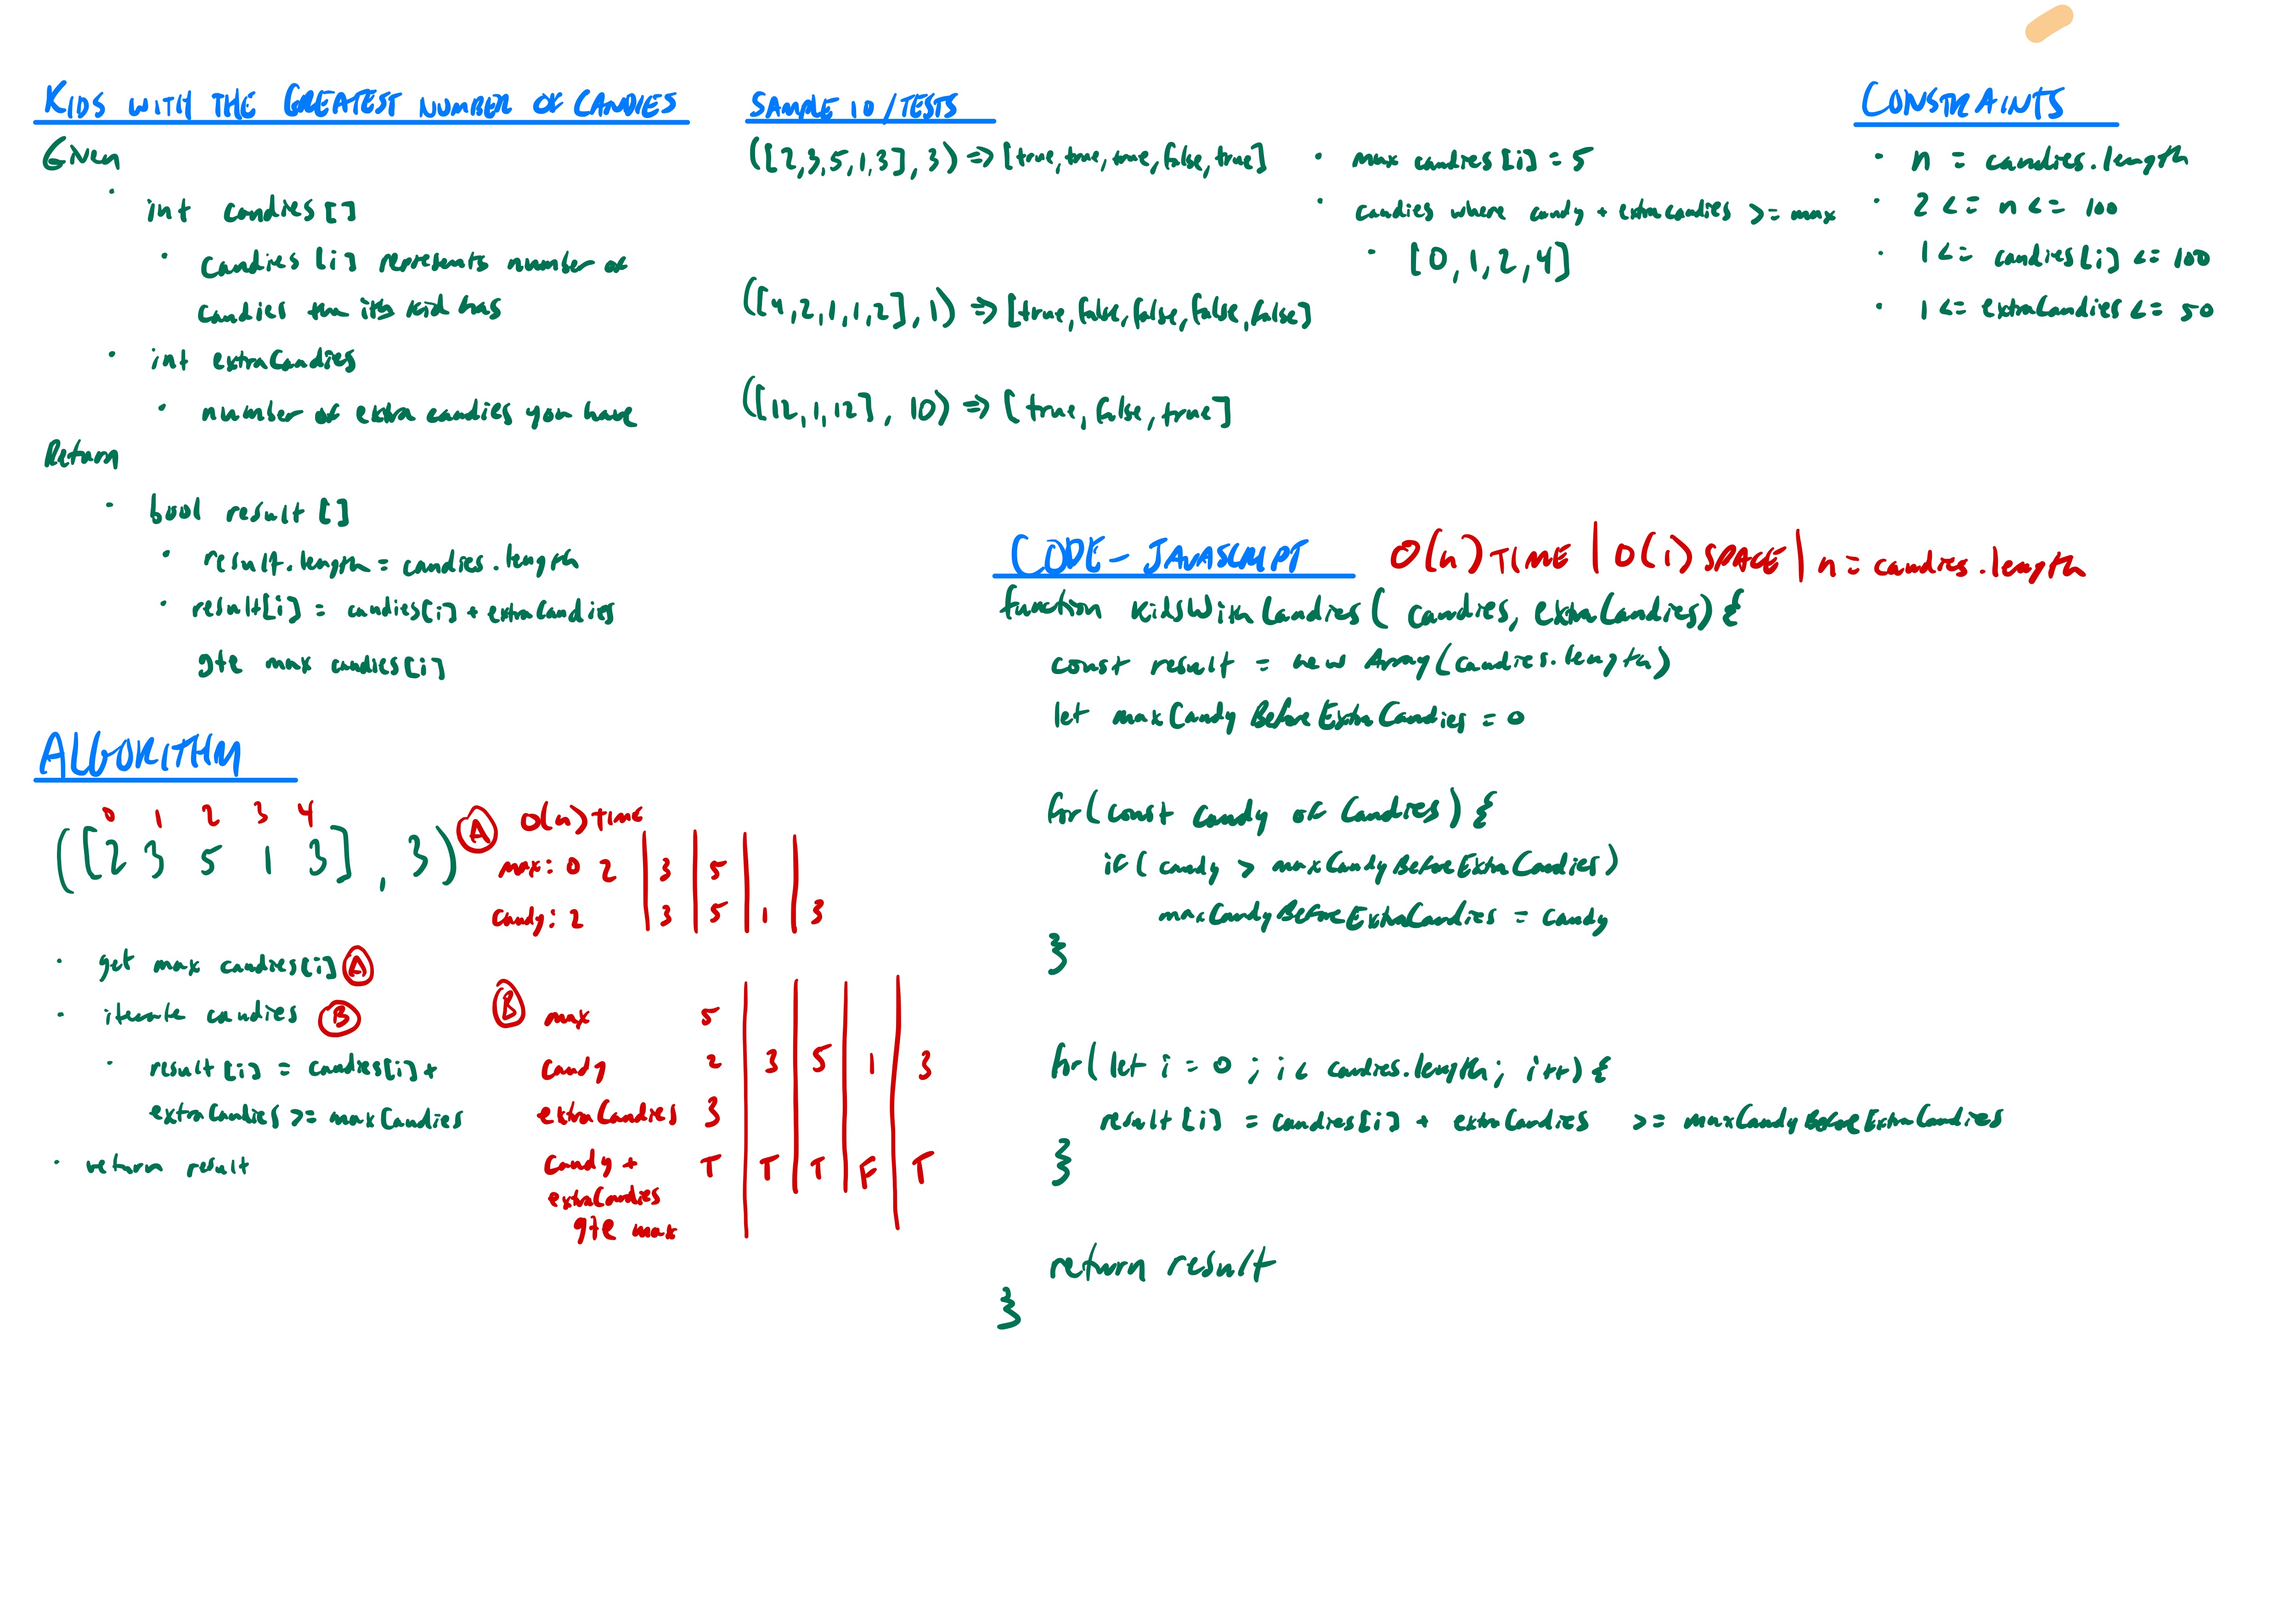 KIDS WITH THE GREATEST NUMBER OF CANDIES
Given
· int candies []
· candies [i] represents number of
candies the ith kid has
· int extraCandies
· number of extra candies you have
Return
· bool result []
· result.length = candies.length
· result[i] = candies[i] + extraCandies
gte max candies[i]
SAMPLE IO/TESTS
([2,3,5,1,3], 3) => [true,true,true,false,true]
([4,2,1,1,2], 1) => [true,false,false,false,false]
([12,1,12], 10) => [true,false,true]
· max candies [i] = 5
· candies where candy + extraCandies >= max
· [0, 1, 2, 4]
CONSTRAINTS
· n = candies.length
· 2 <= n <= 100
· 1 <= candies[i] <= 100
· 1 <= extraCandies <= 50
ALGORITHM
0 1 2 3 4
([2 3 5 1 3], 3)
· get max candies[i] A
· iterate candies B
· result [i] = candies[i] +
extraCandies >= maxCandies
· return result
A O(n) TIME
max: 0 2 | 3 | 5 | |
candy: 2 | 3 | 5 | 1 | 3
B max 5
candy 2 | 3 | 5 | 1 | 3
extraCandies 3
candy + T | T | T | F | T
extraCandies
gte max
CODE - JAVASCRIPT O(n) TIME | O(1) SPACE | n = candies.length
function kidsWithCandies( candies, extraCandies) {
const result = new Array(candies.length)
let maxCandyBeforeExtraCandies = 0
for( const candy of candies) {
if( candy > maxCandyBeforeExtraCandies)
maxCandyBeforeExtraCandies = candy
}
for( let i = 0 ; i < candies.length; i++) {
result [i] = candies[i] + extraCandies >= maxCandyBeforeExtraCandies
}
return result
}